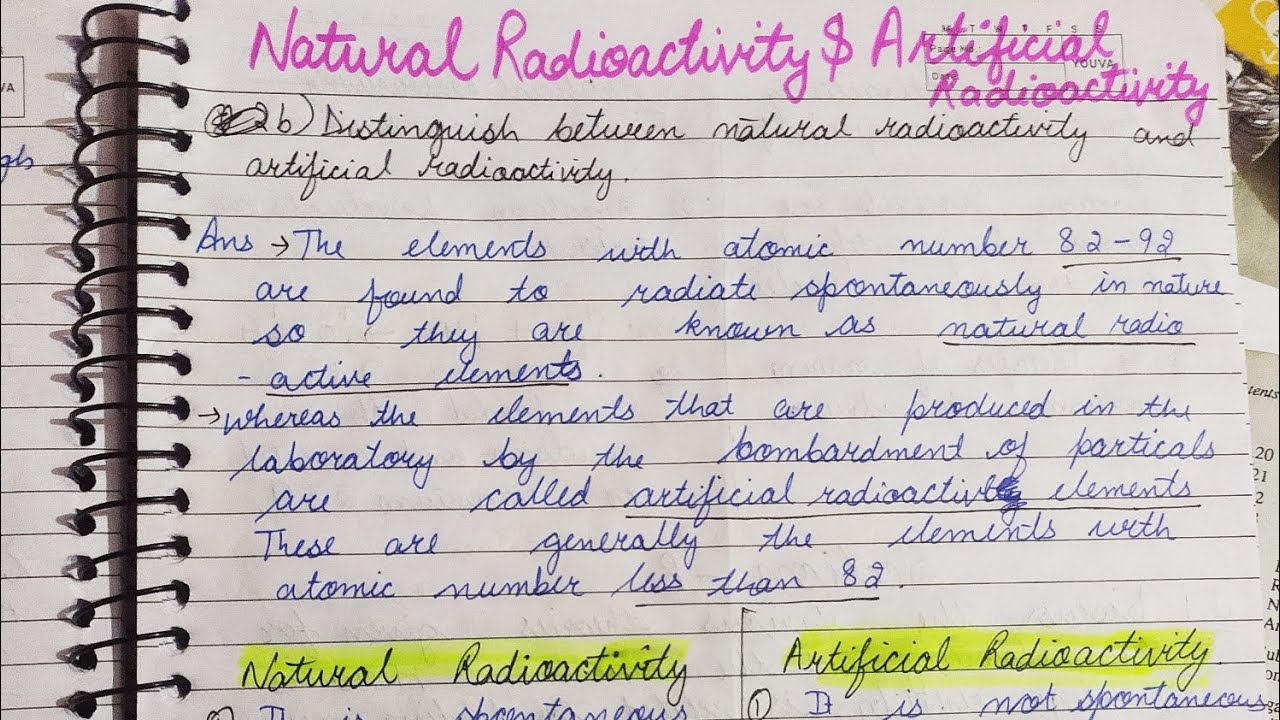 Natural Radioactivity & Artificial
Radioactivity
M T W T F S S
Page No.:
YOUVA
Date:
2b) Distinguish between natural radioactivity and
artificial radioactivity.
Ans → The elements with atomic number 82-92
are found to radiate spontaneously in nature
so they are known as natural radio
- active elements.
→ Whereas the elements that are produced in the
laboratory by the bombardment of particals
are called artificial radioactive elements
These are generally the elements with
atomic number less than 82.
Natural Radioactivity
Artificial Radioactivity.
① It is not spontaneous
is spontaneous
VA
20
21
2